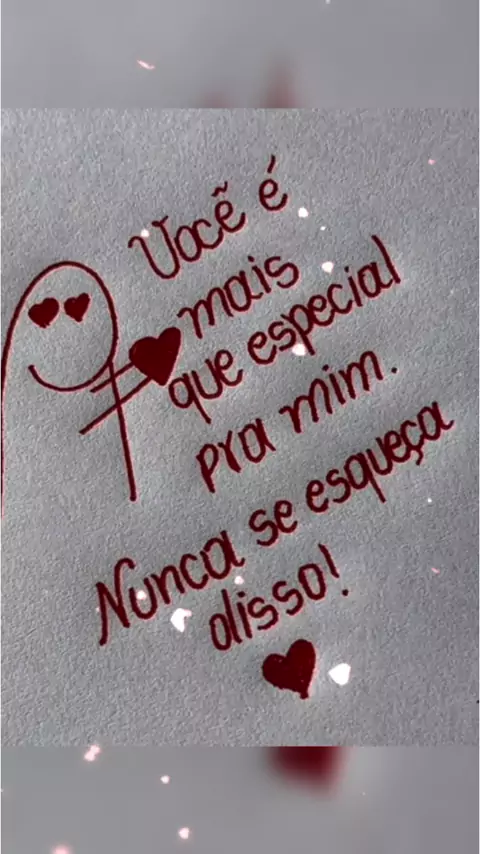 Você é
mais
que especial
pra mim.
Nunca se esqueça
disso!